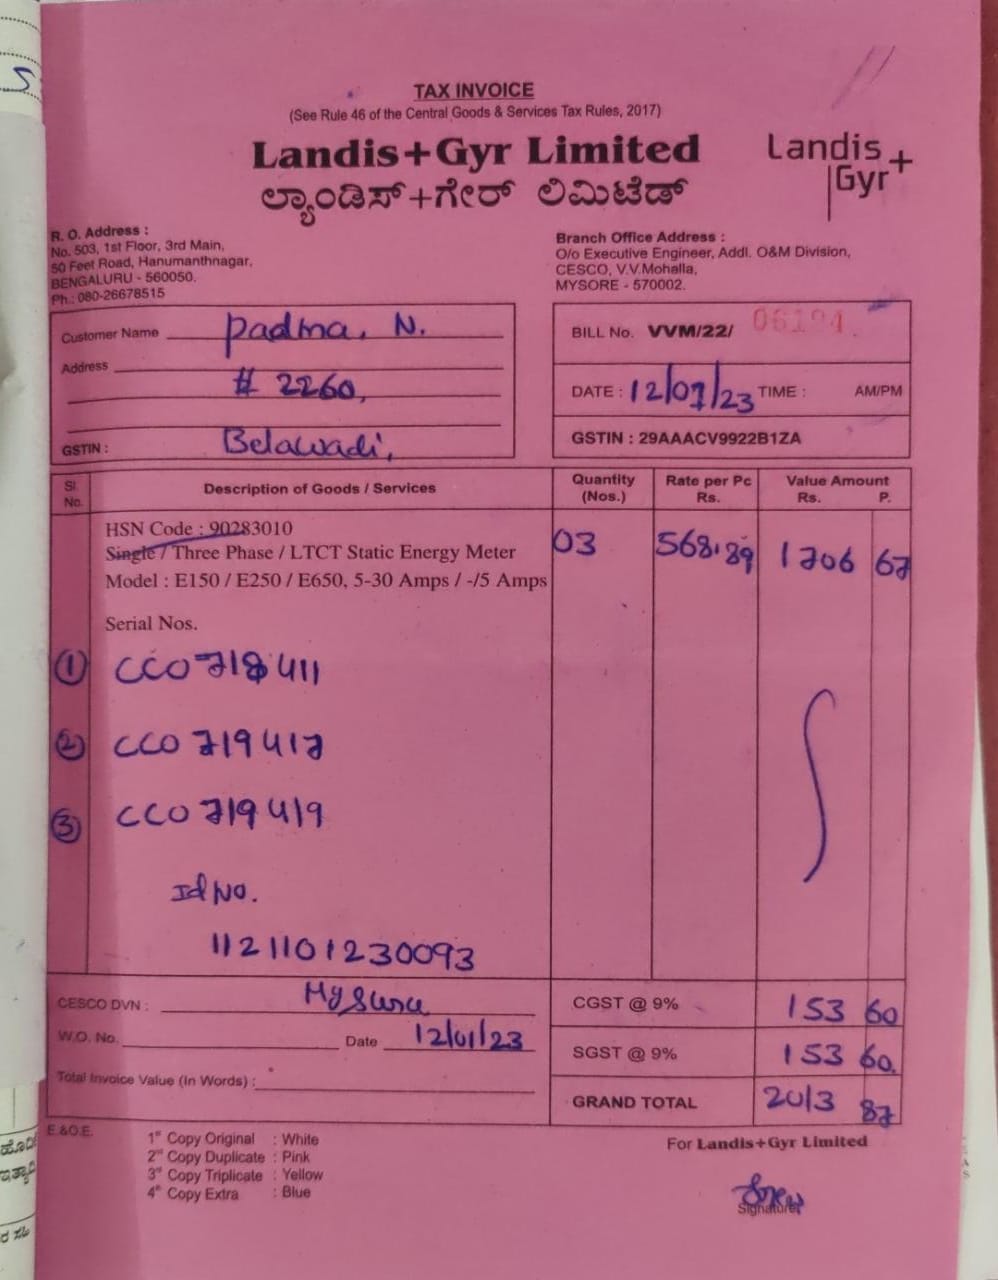 TAX INVOICE
(See Rule 46 of the Central Goods & Services Tax Rules, 2017)
Landis+Gyr Limited
ಲ್ಯಾಂಡಿಸ್+ಗೇರ್ ಲಿಮಿಟೆಡ್
Landis
Gyr+
R. O. Address :
No. 503, 1st Floor, 3rd Main,
50 Feet Road, Hanumanthnagar,
BENGALURU - 560050.
Ph.: 080-26678515
Branch Office Address :
O/o Executive Engineer, Addl. O&M Division,
CESCO, V.V.Mohalla,
MYSORE - 570002.
Customer Name Padma. N.
Address # 2260,
GSTIN : Belawadi,
BILL No. VVM/22/ 06194
DATE : 12/01/23 TIME : AM/PM
GSTIN : 29AAACV9922B1ZA
Sl. No. Description of Goods / Services Quantity (Nos.) Rate per Pc Rs. Value Amount Rs. P.
HSN Code : 90283010
Single / Three Phase / LTCT Static Energy Meter 03 568.89 1706 67
Model : E150 / E250 / E650, 5-30 Amps / -/5 Amps
Serial Nos.
1 CC0718411
2 CC0719417
3 CC0719419
Id No.
1121101230093
CESCO DVN : Mysuru
W.O. No. Date 12/01/23
Total Invoice Value (In Words) :
CGST @ 9% 153 60
SGST @ 9% 153 60.
GRAND TOTAL 2013 87
E.&O.E.
1st Copy Original : White
2nd Copy Duplicate : Pink
3rd Copy Triplicate : Yellow
4th Copy Extra : Blue
For Landis+Gyr Limited
Signature